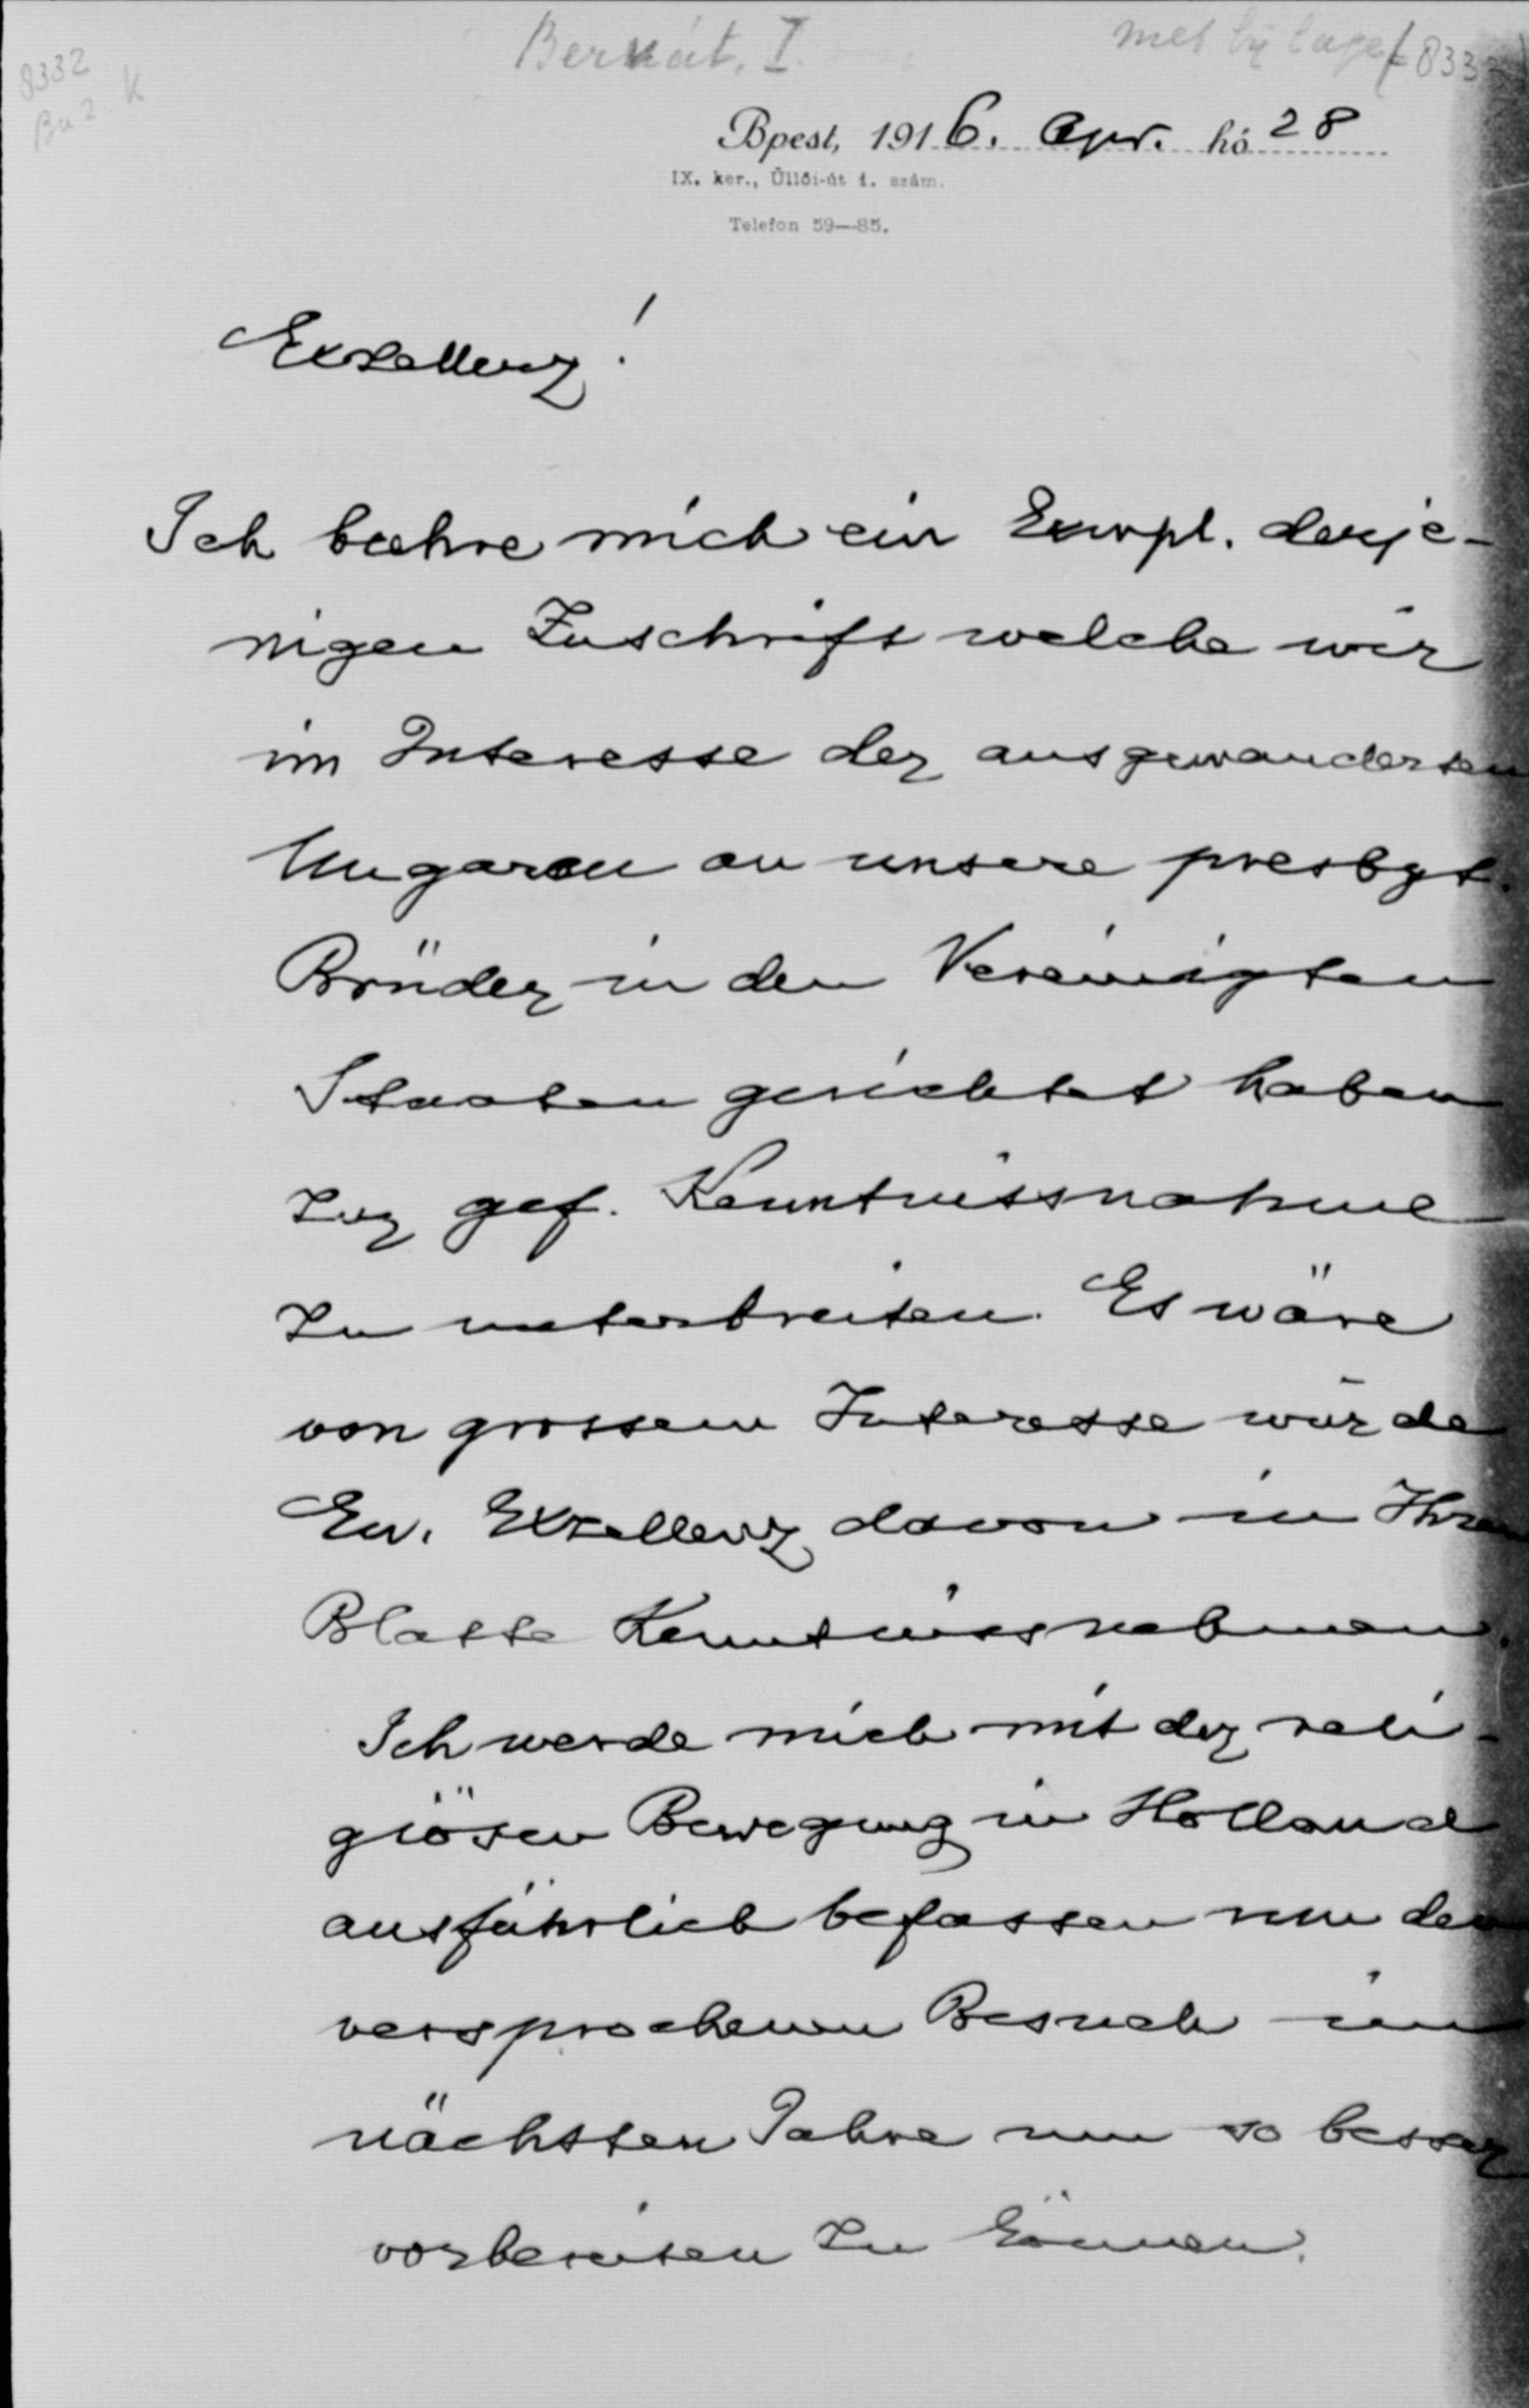 8332
Bu 2 K
Bernát, I.
met bijlage (= 833
Bpest, 1916. Apr. hó 28
IX. ker., Üllői-út 1. szám.
Telefon 59—85.
Exzellenz!
Ich beehre mich ein Exempl. derje-
nigen Zuschrift welche wir
im Interesse der ausgewanderten
Ungaren an unsere presbyt.
Brüder in den Vereinigten
Staaten gerichtet haben
zur gef. Kenntnissnahme
zu unterbreiten. Es wäre
von grossem Interesse würde
Ew. Exzellenz davon in Ihrem
Blatte Kenntniss nehmen.
Ich werde mich mit der reli-
giösen Bewegung in Holland
ausführlich befassen um den
versprochenen Besuch im
nächsten Jahre um so besser
vorbereiten zu können.